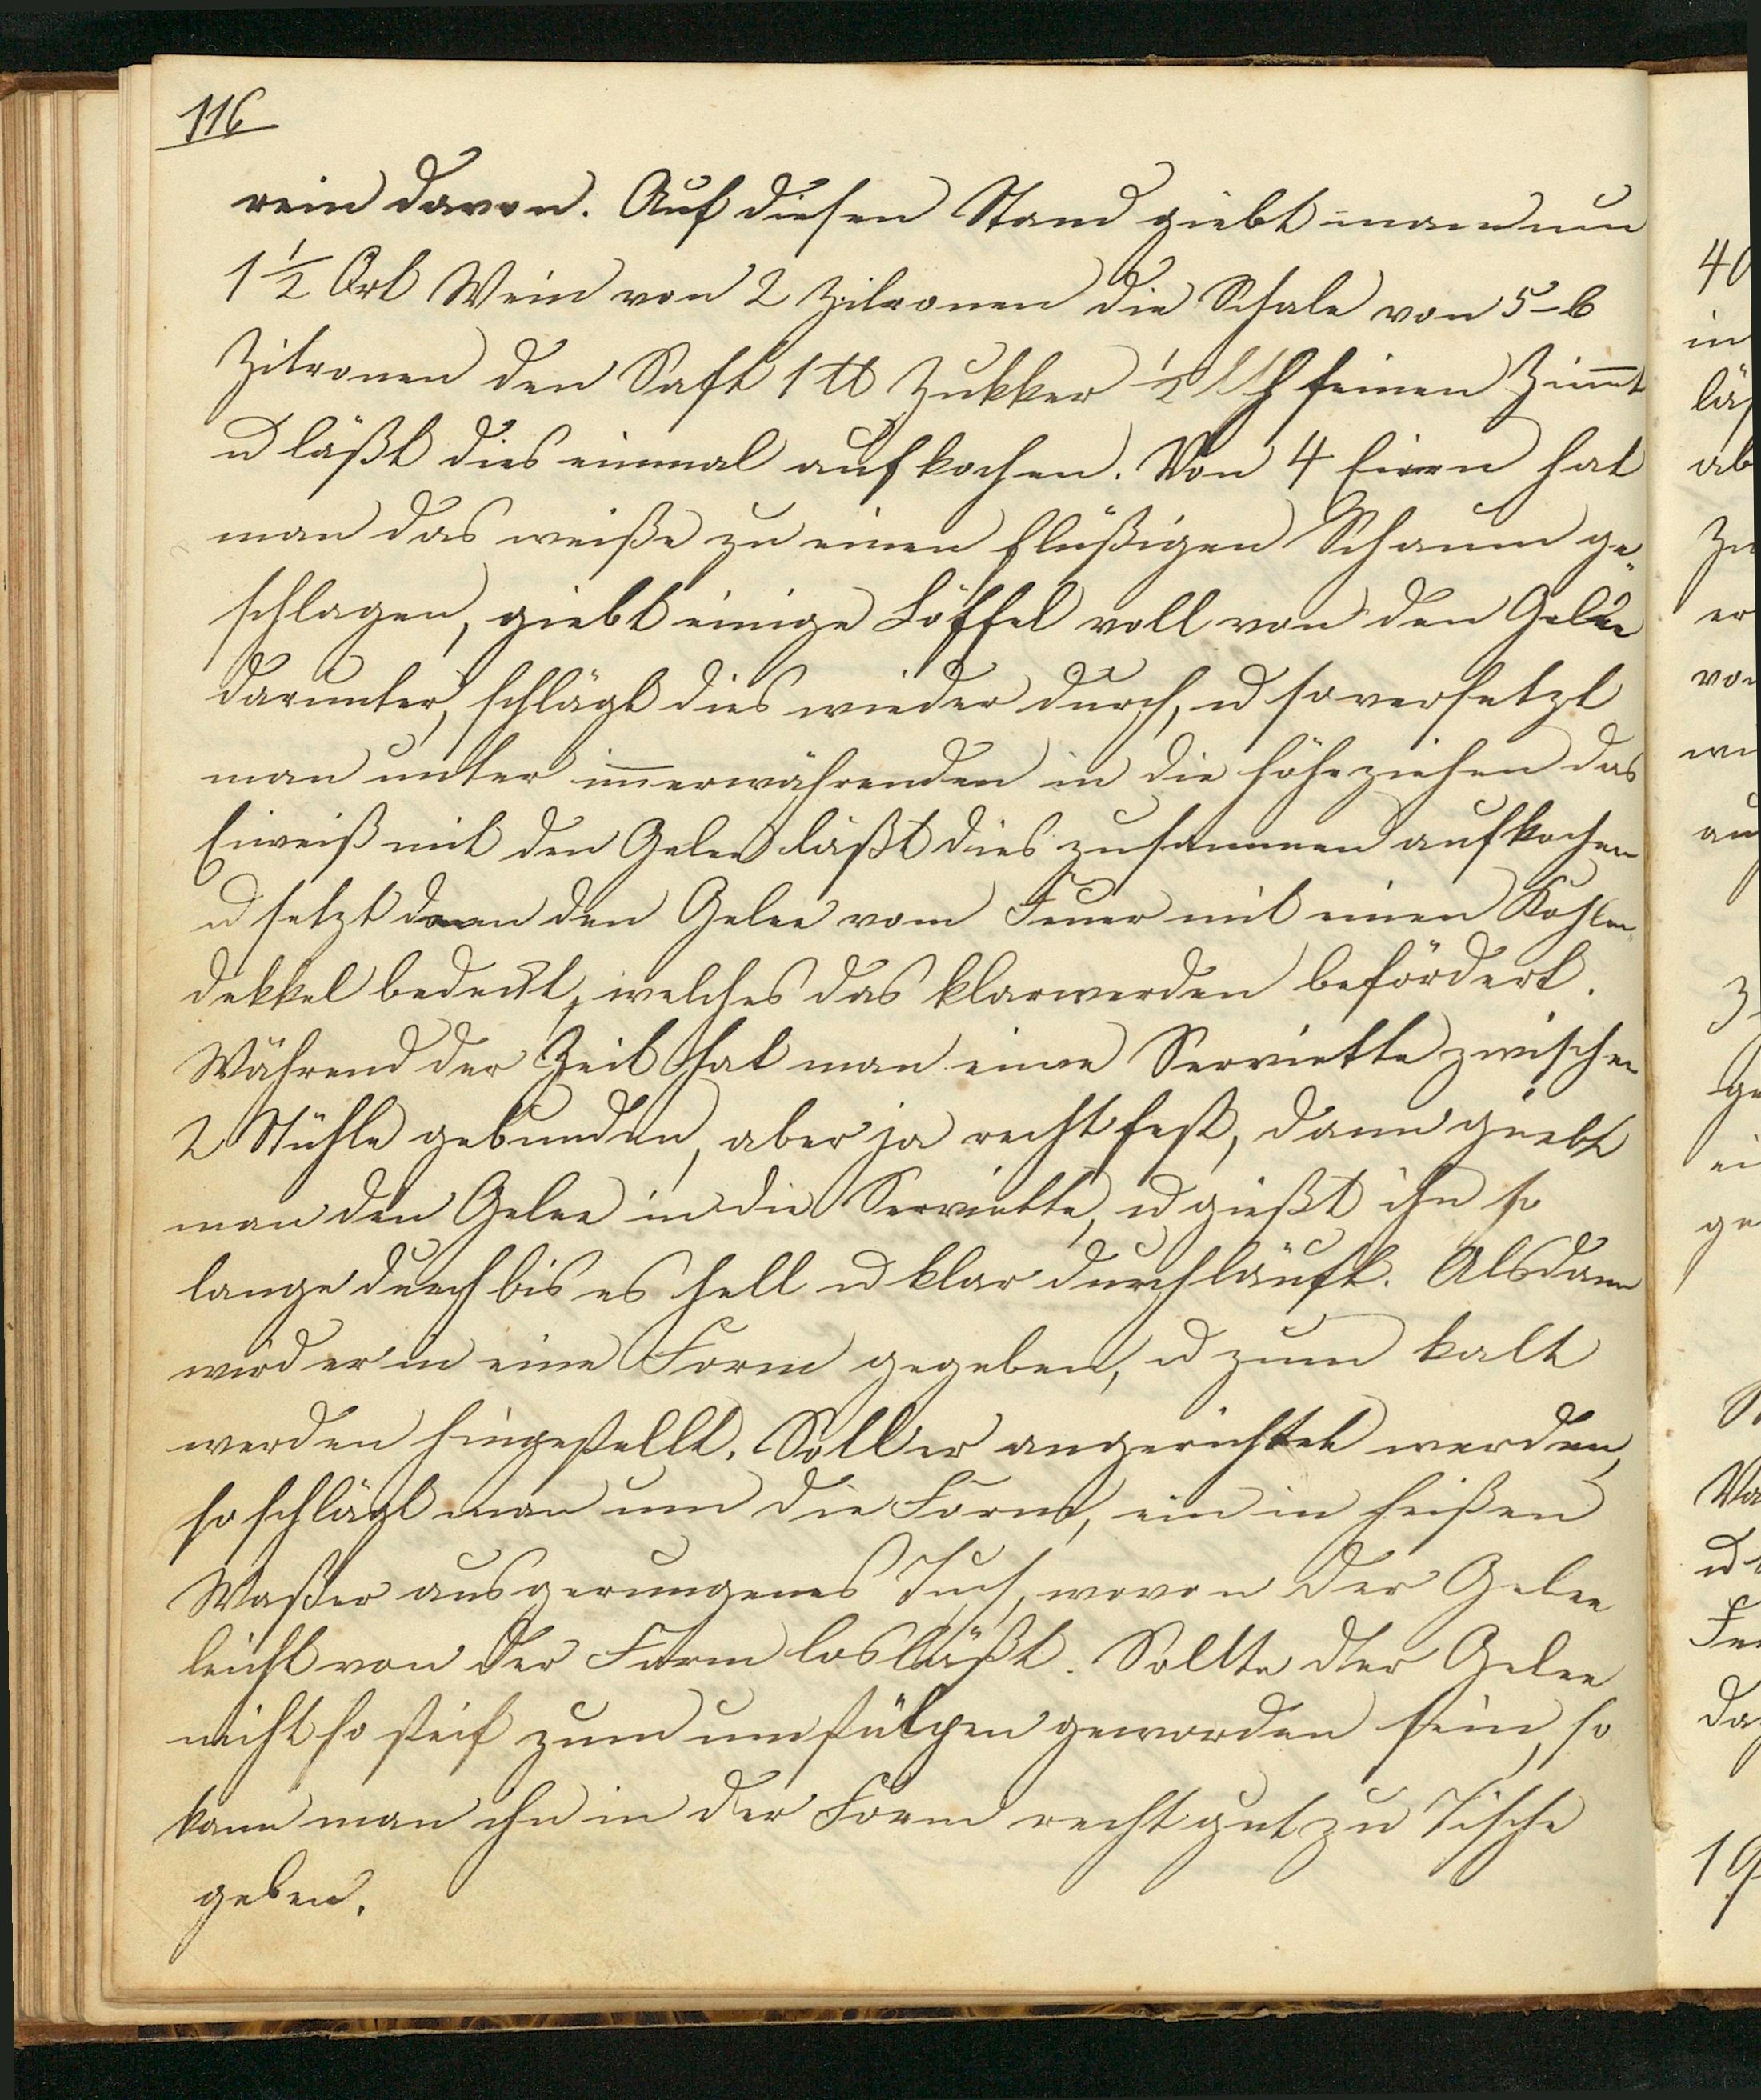 116
rein davon. Auf diesen Stand giebt man nun
1 1/2 Ort Wein von 2 Zitronen die Schale von 5-6
Zitronen den Saft 1 ℔ Zukker 1/2 Lth feinen Zimt
u läßt dies einmal aufkochen. Von 4 Eiern hat
man das weiße zu einen flüßigen Schaum ge-
schlagen, giebt einige Löffel voll von den Gelee
darunter, schlägt dies wieder durch, u so versetzt
man unter immerwährenden in die höhe ziehen das
Eiweiß mit den Gelee läßt dies zusammen aufkochen
u setzt dann den Gelee vom Feuer mit einen Kohlen-
dekkel bedeckt, welches das klarwerden befördert.
Während der Zeit hat man eine Serviette zwischen
2 Stühle gebunden, aber ja recht fest, dann giebt
man den Gelee in die Serviette, u gießt ihn so
lange durch bis es hell u klar durchläuft. Alsdann
wird er in eine Form gegeben, u zum kalt
werden hingestellt. Soll er angerichtet werden,
so schlägt man um die Form, ein in heißen
Waßer ausgerungenes Tuch, wovon der Gelee
leicht von der Form losläßt. Sollte der Gelee
nicht so steif zum umstülpen geworden sein, so
kann man ihn in der Form recht gut zu Tische
geben.
40
in
ab
er
von
19